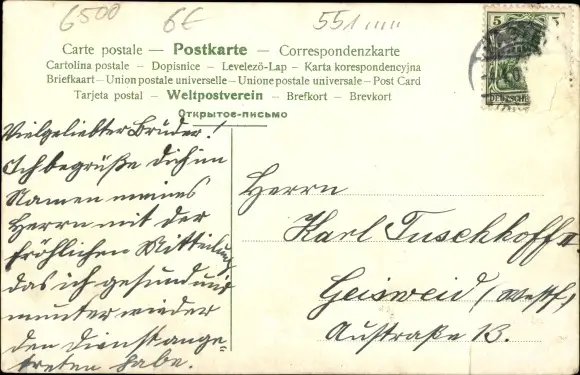 6500 6€ 551
Carte postale — Postkarte — Correspondenzkarte
Cartolina postale – Dopisnice – Levelező-Lap – Karta korespondencyjna
Briefkaart – Union postale universelle – Unione postale universale – Post Card
Tarjeta postal – Weltpostverein – Brefkort – Brevkort
Открытое-письмо
5 5
DEUTSCHES
Vielgeliebter Bruder!
Ich begrüße dich im
Namen meines
Herrn mit der
fröhlichen Mitteilung
das ich gesund und
munter wieder
den Dienst ange-
treten habe.
Herrn
Karl Tuschhoff II.
Geisweid (Westf.)
Austraße 13.